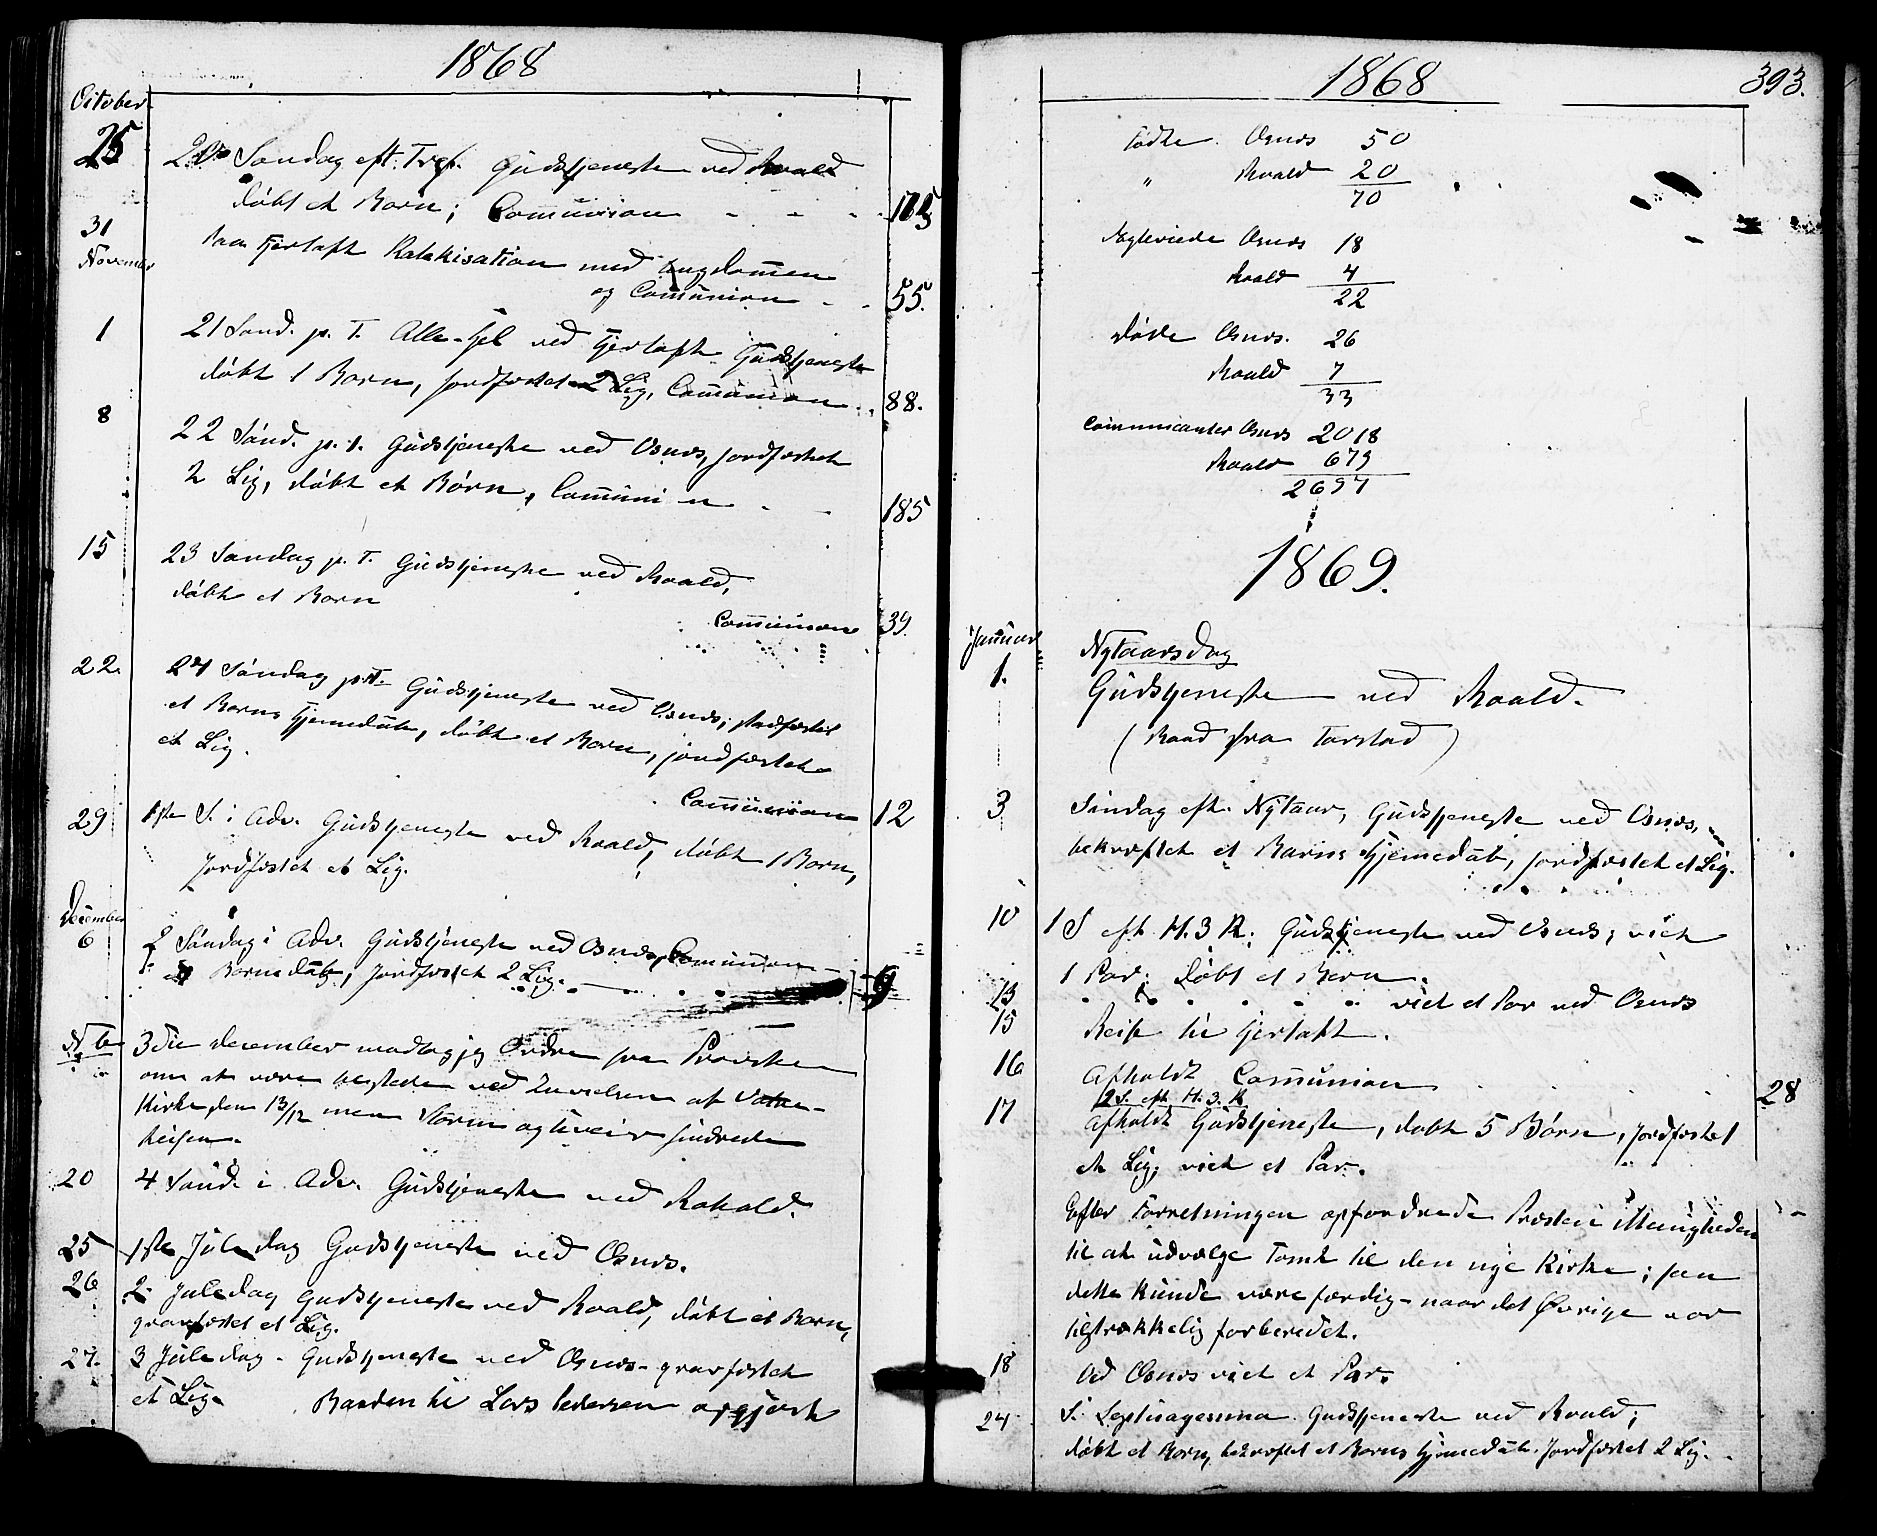 1868
October
25 20de Søndag eft. Tref. Gudstjeneste ved Roald
døbt et Barn; Communion - - - 175
31 Paa Fjertoft Katekisation med Ungdommen
November
og Communion - - 55.
1 21 Sønd. p. T. Alle-Hel ved Fjertoft Gudstjeneste
døbt 1 Barn, jordfæstet 2 Lig, Communion .. 88.
8 22 Sønd. p. T. Gudstjeneste ved Osnæs, jordfæstet
2 Lig, døbt et Børn, Communi n - - 185
15 23 Søndag p. T. Gudstjeneste ved Roald,
døbt et Barn
Communion 39
22. 24 Søndag p. T. Gudstjeneste ved Osnæs; stadfæstet
et Barns Hjemmedaab, døbt et Barn, jordfæstet
et Lig.
Communion 12
29 1ste S. i Adv. Gudstjeneste ved Roald, døbt 1 Barn,
Jordfæstet et Lig.
December
6 2 Søndag i Adv. Gudstjeneste ved Osnæs, Communion
et Barnedaab, jordfæstet 2 Lig. 9
Nb 3die December modtog jeg Ordre fra Provsten
om at være tilstede ved Indvielsen af Vatne-
Kirke den 13/12 men Storm og Uveir hindrede
Reisen.
20 4 Sønd. i Adv. Gudstjeneste ved Rohald.
25 1ste Juledag Gudstjeneste ved Osnæs.
26 2. Juledag Gudstjeneste ved Roald, døbt et Barn,
gravfæstet et Lig.
27. 3 Juledag - Gudstjeneste ved Osnæs - gravfæstet
et Lig. Baaden til Lars Pedersen opgjort
1868 393.
Fødte Osnæs 50
" Roald 20
70
Ægteviede Osnæs 18
Roald 4
22
Døde Osnæs. 26
Roald 7
33
Communicanter Osnæs 2018
Roald 679
2697
1869.
Januar
1. Nytaarsdag
Gudstjeneste ved Roald.
(Baad fra Tarstad)
3 Søndag eft. Nytaar, Gudstjeneste ved Osnæs,
bekræftet et Barns Hjemedaab, jordfæstet et Lig.
10 1 S eft H. 3 K; Gudstjeneste ved Osnæs; viet
1 Par; Døbt et Barn.
13 viet et Par ved Osnæs
15 Reise til Fjertoft.
16 Afholdt Communion 28
2 S. eft. H. 3. K
17 Afholdt Gudstjeneste, døbt 5 Børn, jordfæstet
et Lig, viet et Par.
Efter Forretningen opfordrede Præsten Menigheden
til at udvælge Tomt til den nye Kirke; saa
dette kunde være færdig - naar det Øvrige var
tilstrækkelig forberedet.
18 Ved Osnæs viet et Par.
24 S. Septuagesima Gudstjeneste ved Roald;
døbt et Barn, bekræftet et Barns Hjemedaab. Jordfæstet 2 Lig.